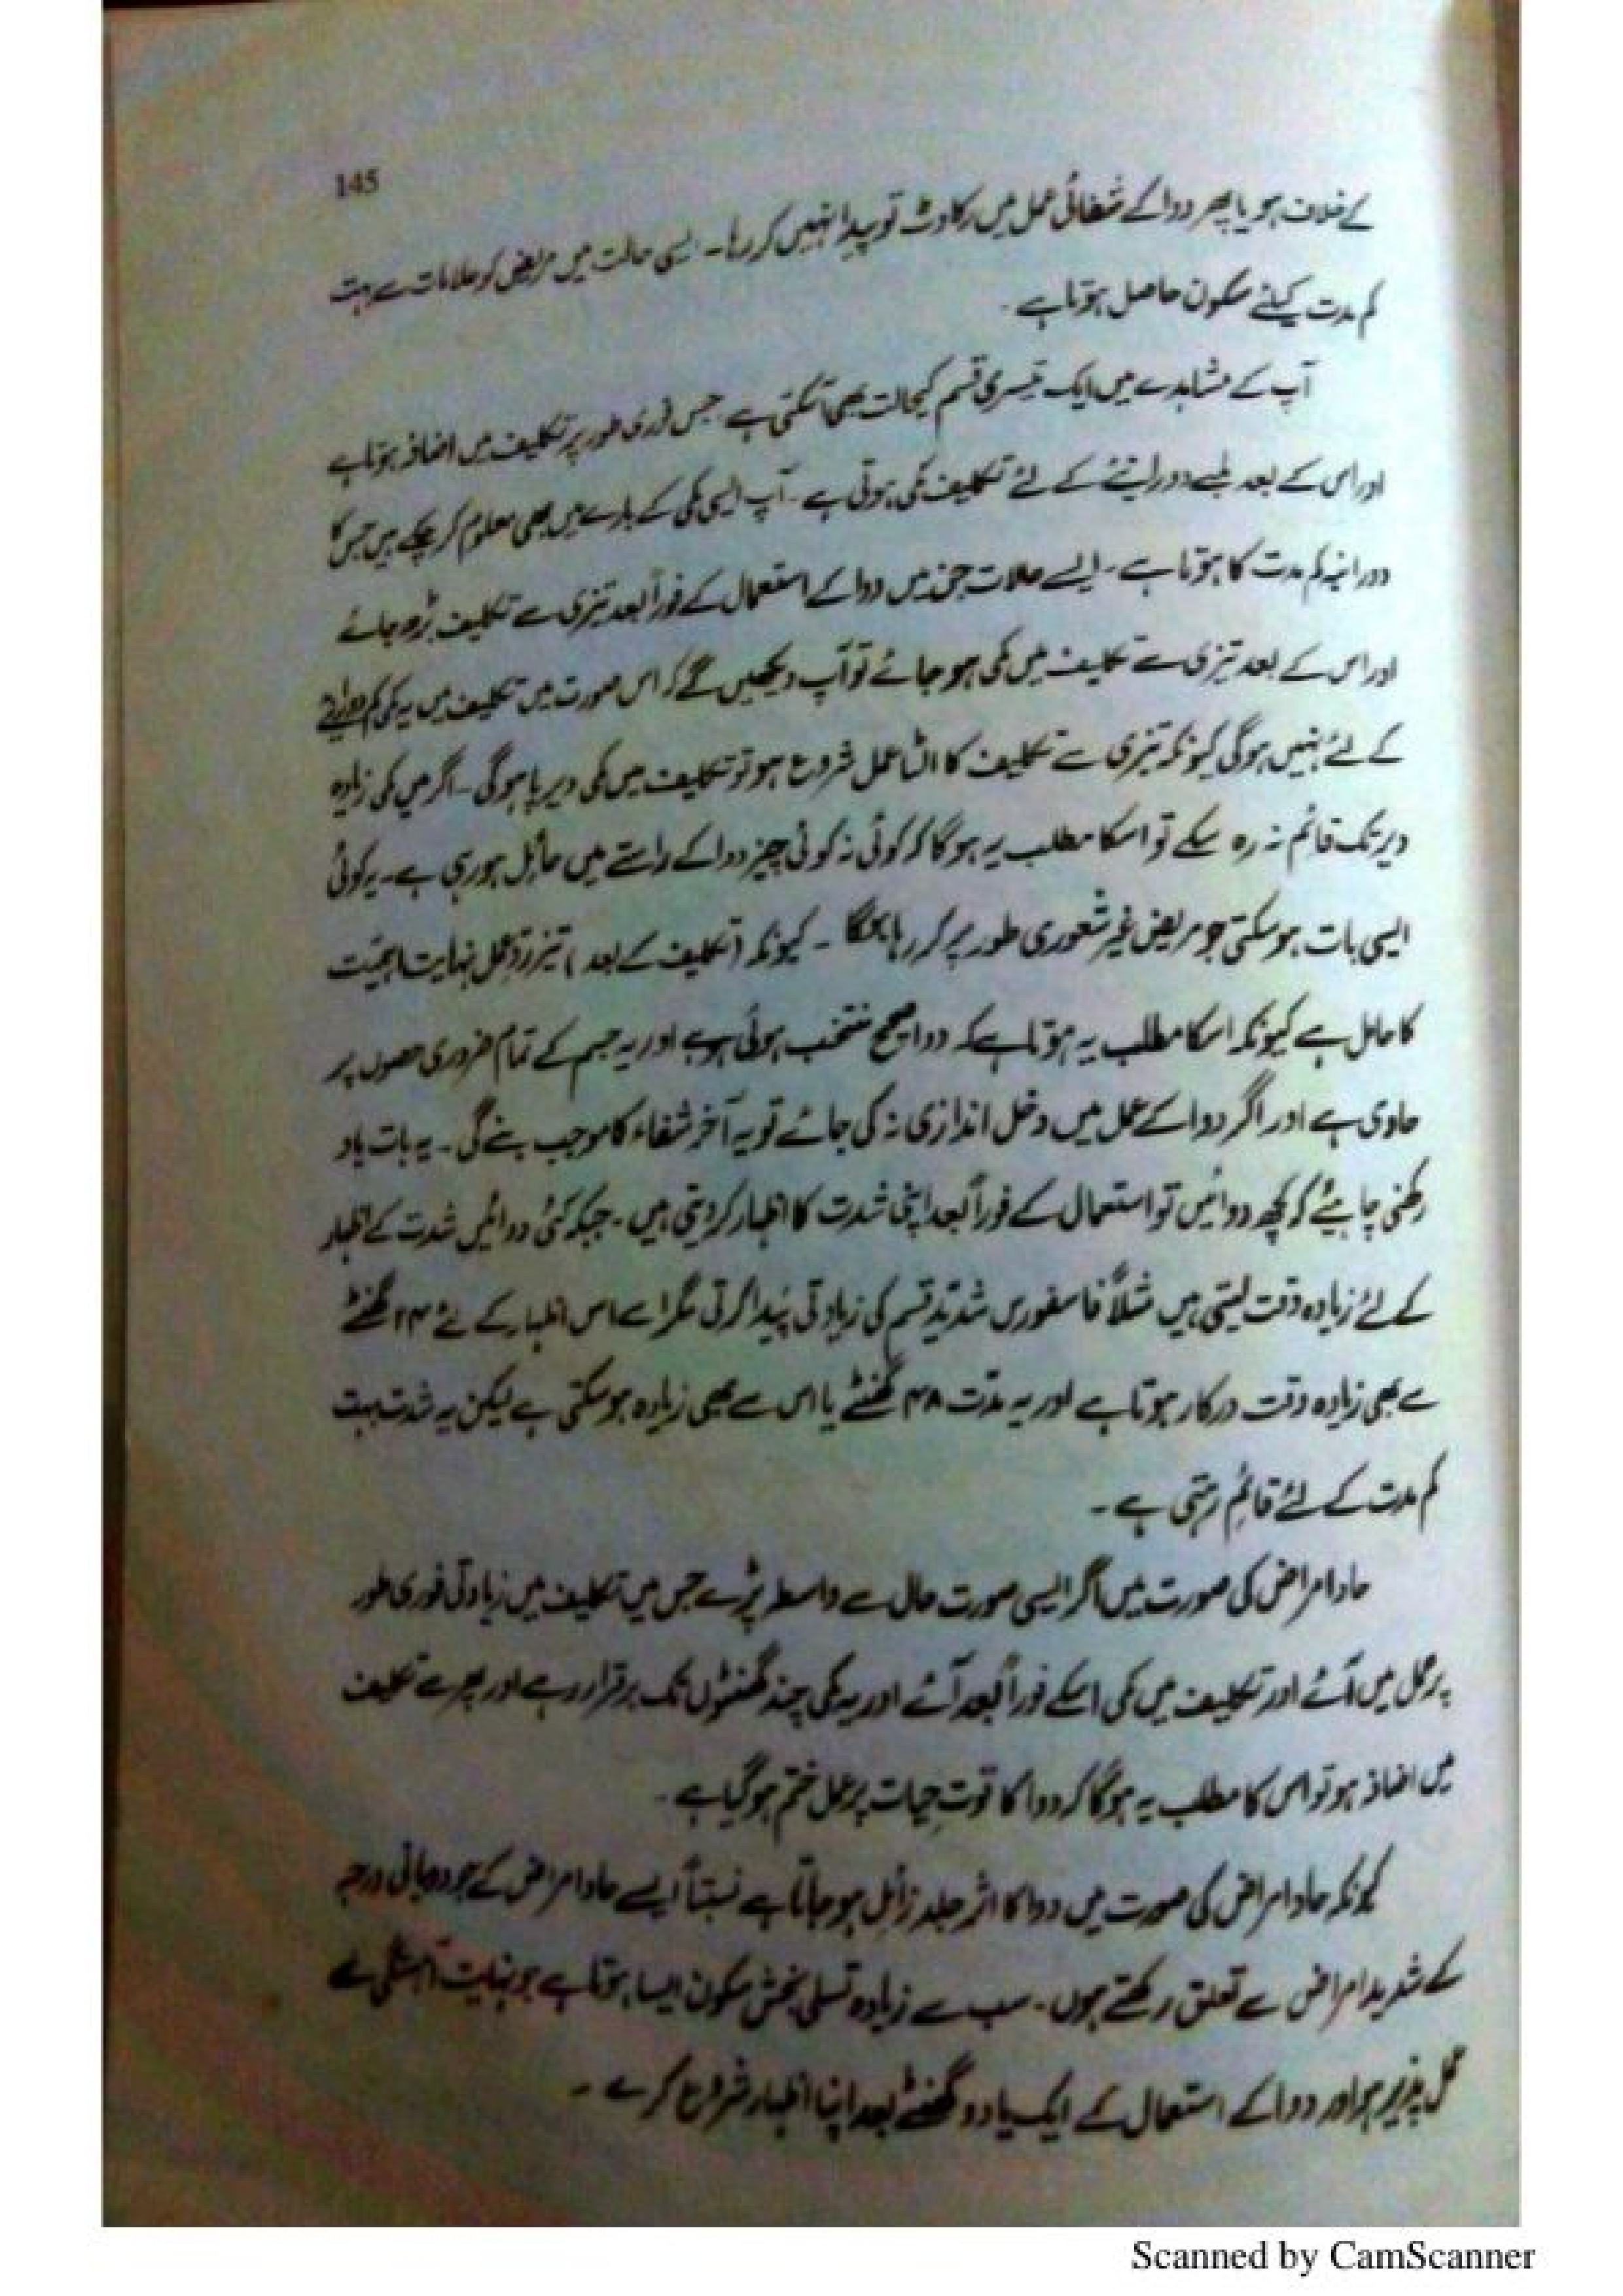 145
کے خلاف ہو یا پھر دوا کے شفائی عمل میں رکاوٹ تو پیدا نہیں کر رہا۔ ایسی حالت میں مریض کو علامات سے بہت
کم مدت کیلئے سکون حاصل ہوتا ہے۔
آپ کے مشاہدے میں ایک تیسری قسم کیحالت بھی آسکتی ہے جس فوری طور پر تکلیف میں اضافہ ہوتا ہے
اور اس کے بعد لمبے دورانیئے کے لئے تکلیف کی ہوتی ہے۔ آپ ایسی کمی کے بارے میں بھی معلوم کر چکے ہیں جس کا
دورانیہ کم مدت کا ہوتا ہے۔ ایسے حالات جن میں دوا کے استعمال کے فوراً بعد تیزی سے تکلیف بڑھ جائے
اور اس کے بعد تیزی سے تکلیف میں کمی ہو جائے تو آپ دیکھیں گے کہ اس صورت میں تکلیف میں یہ کمی کم دورانیے
کے لئے نہیں ہوگی کیونکہ تیزی سے تکلیف کا الٹا عمل شروع ہو تو تکلیف میں کمی دیر پا ہوگی۔ اگر یہ کمی زیادہ
دیر تک قائم نہ رہ سکے تو اسکا مطلب یہ ہوگا کہ کوئی نہ کوئی چیز دوا کے راستے میں حائل ہو رہی ہے۔ یہ کوئی
ایسی بات ہو سکتی جو مریض غیر شعوری طور پر کر رہا ہوگا۔ کیونکہ (تکلیف کے بعد) تیز ردِّعمل نہایت اہمیت
کا حامل ہے کیونکہ اسکا مطلب یہ ہوتا ہے کہ دوا صحیح منتخب ہوئی ہے اور یہ جسم کے تمام ضروری حصوں پر
حاوی ہے اور اگر دوا کے عمل میں دخل اندازی نہ کی جائے تو یہ آخر شفاء کا موجب بنے گی۔ یہ بات یاد
رکھنی چاہیئے کہ کچھ دوائیں تو استعمال کے فوراً بعد اپنی شدت کا اظہار کر دیتی ہیں۔ جبکہ کئی دوائیں شدت کے اظہار
کے لئے زیادہ وقت لیتی ہیں مثلاً فاسفورس شدید قسم کی زیادتی پیدا کرتی مگر اسے اس اظہار کے لئے ۲۴ گھنٹے
سے بھی زیادہ وقت درکار ہوتا ہے اور یہ مدّت ۴۸ گھنٹے یا اس سے بھی زیادہ ہو سکتی ہے لیکن یہ شدت بہت
کم مدت کے لئے قائم رہتی ہے۔
حاد امراض کی صورت میں اگر ایسی صورت حال سے واسطہ پڑے جس میں تکلیف میں زیادتی فوری طور
پر عمل میں آئے اور تکلیف میں کمی اسکے فوراً بعد آئے اور یہ کمی چند گھنٹوں تک برقرار رہے اور پھر سے تکلیف
میں اضافہ ہو تو اس کا مطلب یہ ہوگا کہ دوا کا قوتِ حیات پر عمل ختم ہو گیا ہے۔
کیونکہ حاد امراض کی صورت میں دوا کا اثر جلد زائل ہو جاتا ہے نسبتاً ایسے حاد امراض کے جو درمیانی درجہ
کے شدید امراض سے تعلق رکھتے ہوں۔ سب سے زیادہ تسلی بخش سکون ایسا ہوتا ہے جو نہایت آہستگی سے
عمل پذیر ہو اور دوا کے استعمال کے ایک یا دو گھنٹے بعد اپنا اظہار شروع کرے۔
Scanned by CamScanner